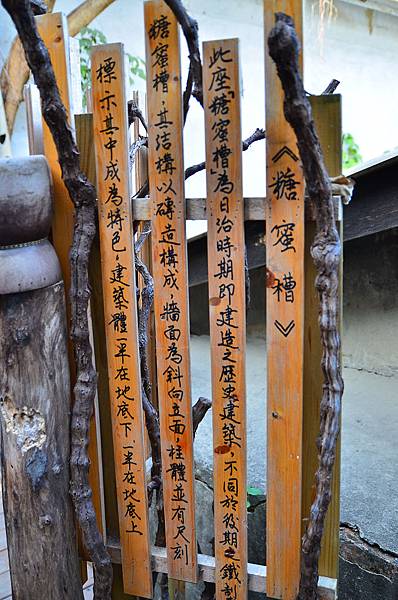 《糖蜜槽》
此座「糖蜜槽」為日治時期即建造之歷史建築，不同於後期之鐵製
糖蜜槽，其結構以磚造構成，牆面為斜向立面，柱體並有尺刻
標示其中成為特色，建築體一半在地底下一半在地底上